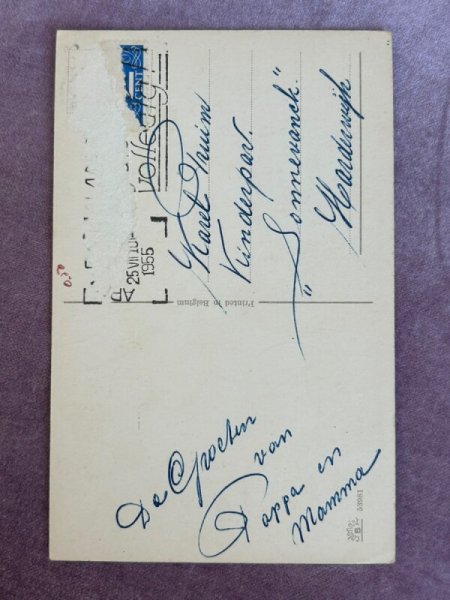 De Groeten
van
Pappa en
Mamma
53981
Printed in Belgium
CENT
volledig
25 VII 10
1955
0.50
Karel Pruim
Kinderpav.
"Sonnevanck"
Harderwijk